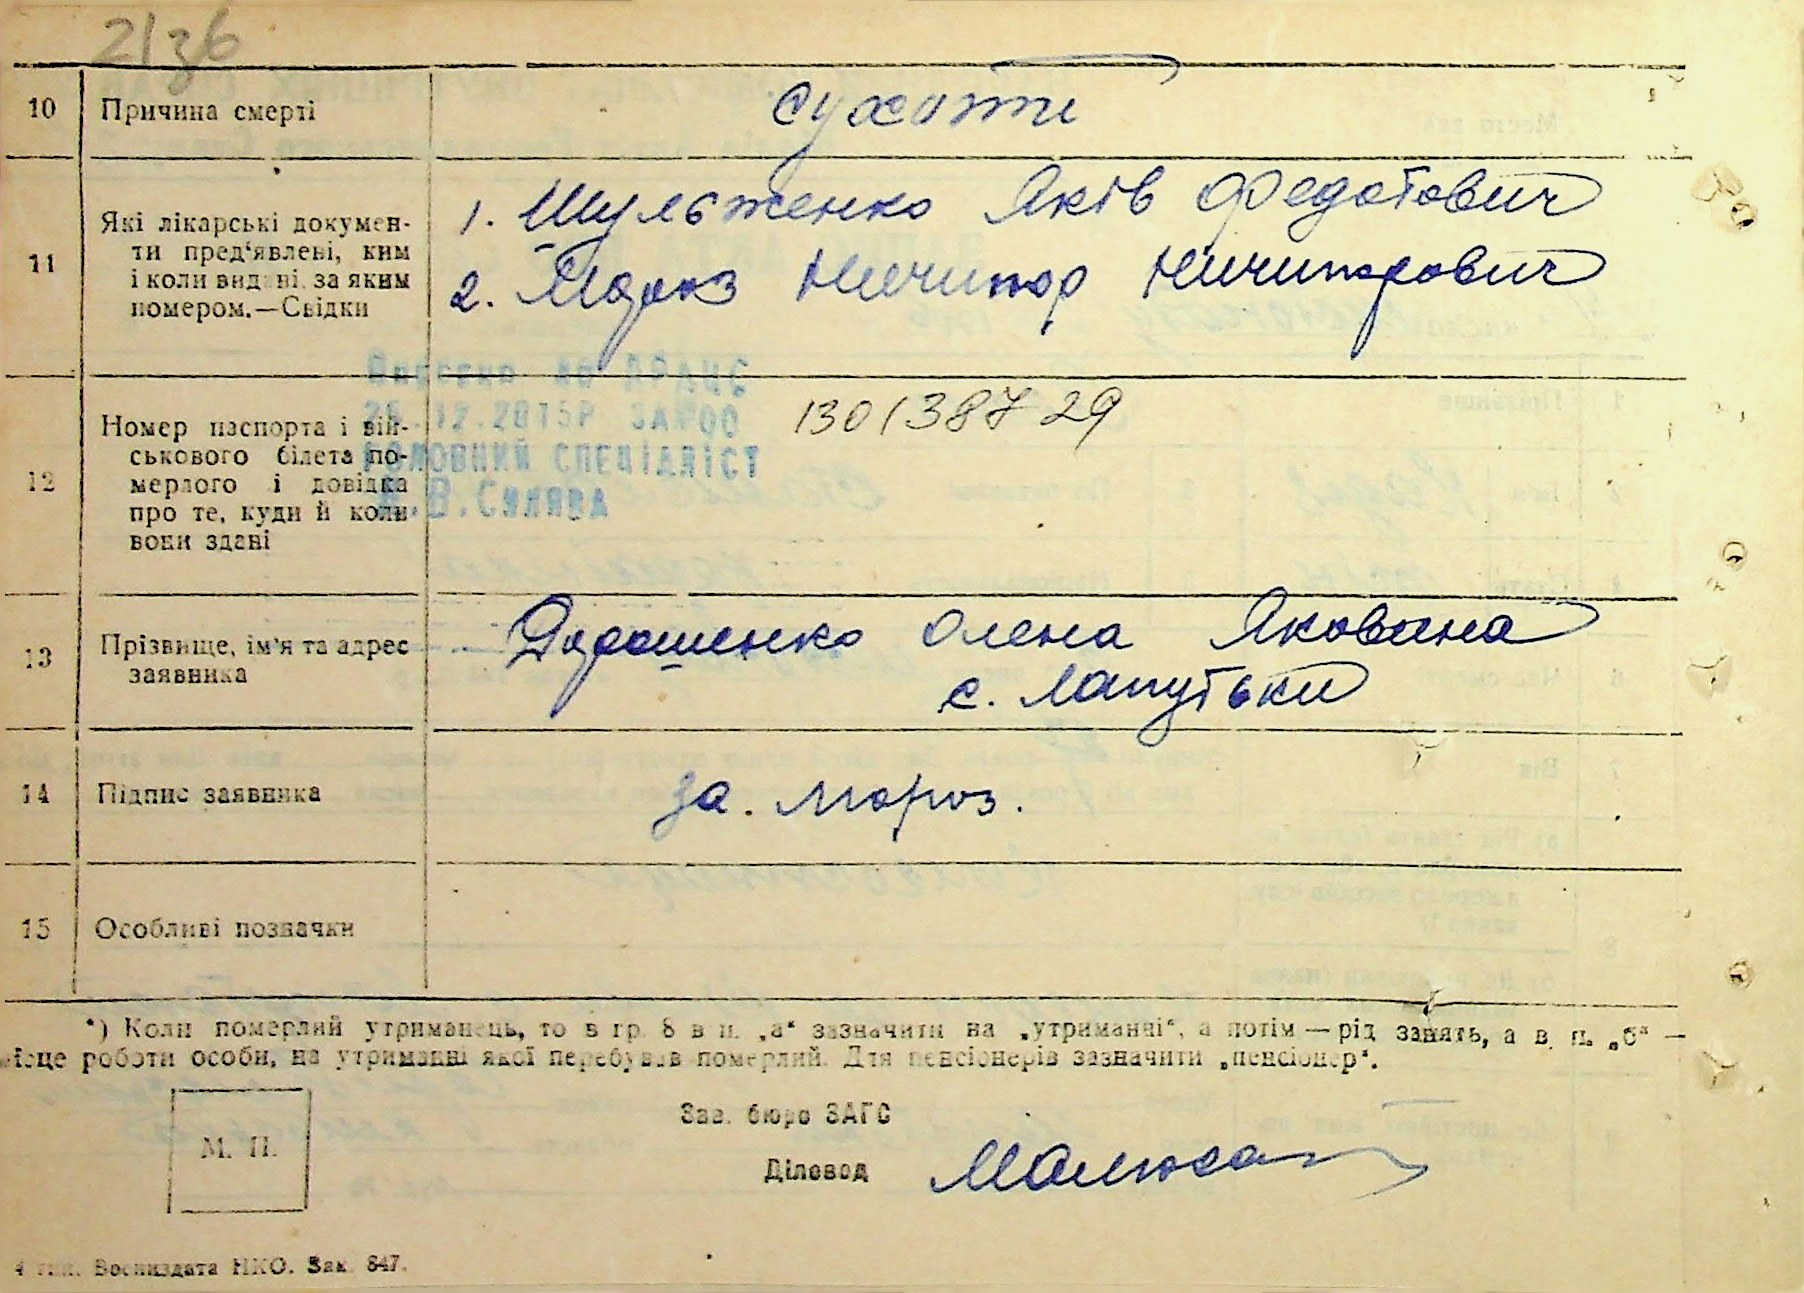 21зб
10 Причина смерті сухоти
11 Які лікарські докумен-
ти пред'явлені, ким
і коли видані, за яким
номером.—Свідки
1. Шульженко Яків Федотович
2. Мороз Ничипор Ничипорович
Внесено до ДРАЦС
12.2015Р ЗА №00
ГОЛОВНИЙ СПЕЦІАЛІСТ
В.Силява
12 Номер паспорта і вій-
ськового білета по-
мерлого і довідка
про те, куди й коли
вони здані
130138729
13 Прізвище, ім'я та адрес
заявника
Дорошенко Олена Яковвна
с. Лапутьки
14 Підпис заявника за. Мороз.
15 Особливі позначки
*) Коли померлий утриманець, то в гр. 8 в п. „а“ зазначити на „утриманні“, а потім — рід занять, а в п. „б“ —
місце роботи особи, на утриманні якої перебував померлий. Для пенсіонерів зазначити „пенсіонер“.
М. П.
Зав. бюро ЗАГС
Діловод
4 тип. Воениздата НКО. Зак. 847.